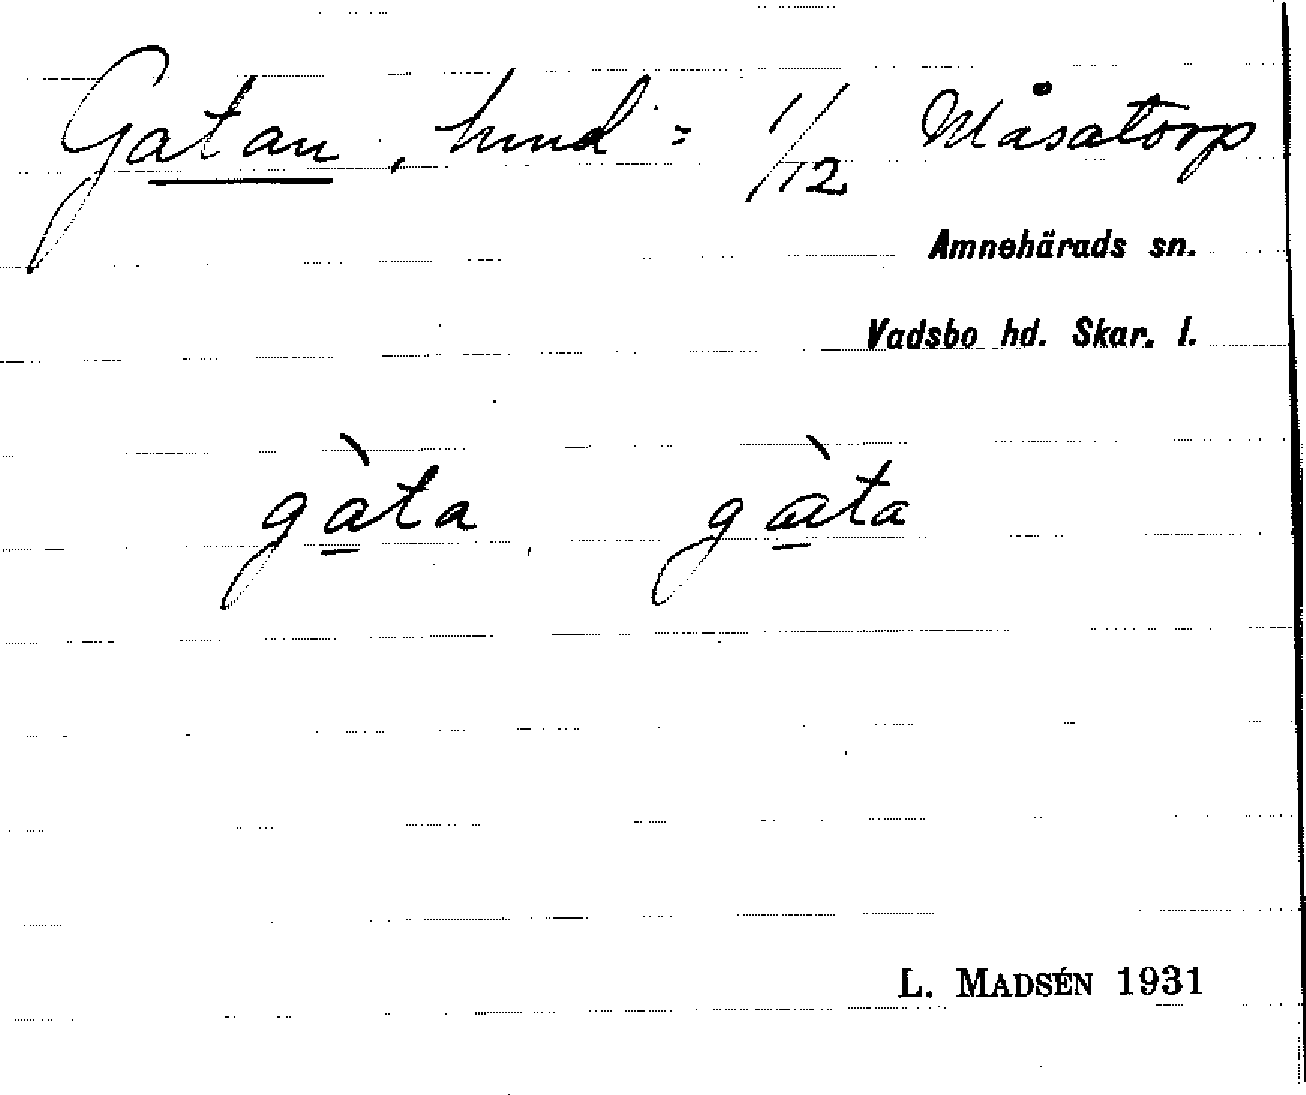 Gatan, hmd = 1/12 Måsatorp
Amnehärads sn.
Vadsbo hd. Skar. l.
gàta, gàta
L. MADSÉN 1931